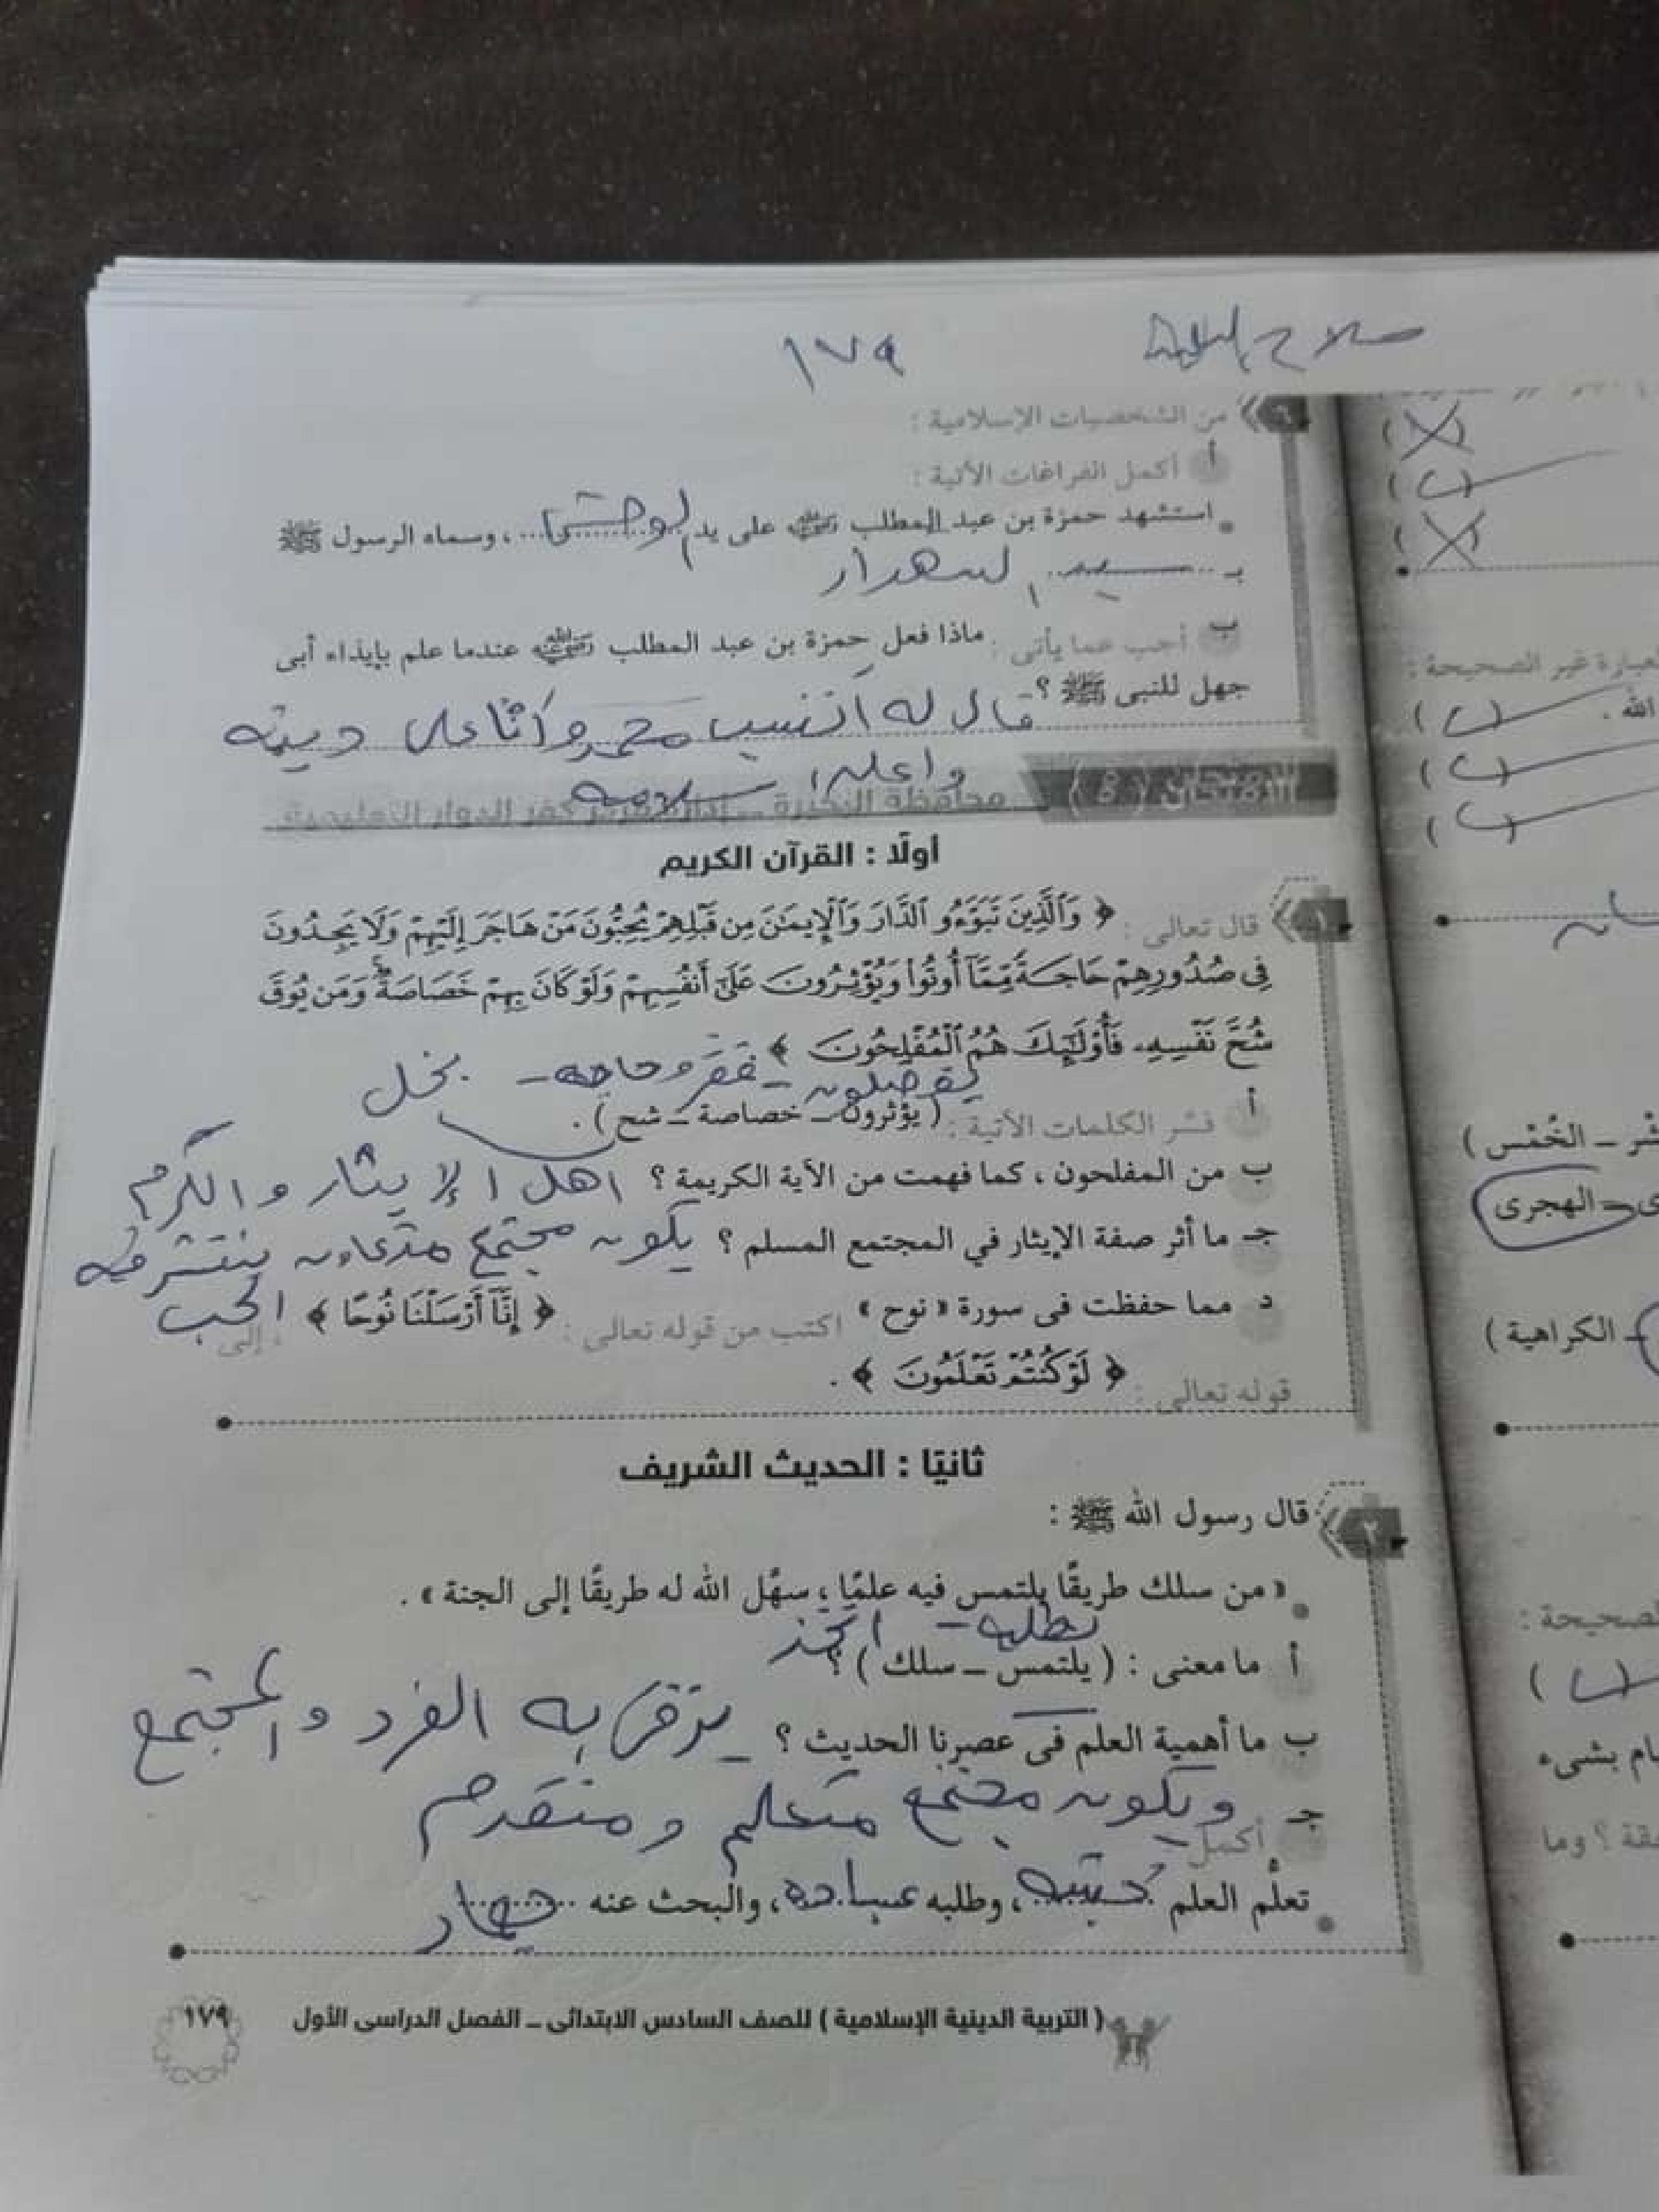 صلاح
١٧٩
٦ من الشخصيات الإسلامية :
أ أكمل الفراغات الآتية :
استشهد حمزة بن عبد المطلب رضي الله عنه على يد أبو حشى ، وسماه الرسول ﷺ
بـ سيد الشهداء
ب أجب عما يأتى : ماذا فعل حمزة بن عبد المطلب رضي الله عنه عندما علم بإيذاء أبى
جهل للنبى ﷺ ؟ قال له أتسب محمد وأنا على دينه
واعلن اسلامه
الامتحان ( ٥ ) محافظة البحيرة – إدارة مركز كفر الدوار التعليمية
أولًا : القرآن الكريم
١ قال تعالى : ﴿ وَٱلَّذِينَ تَبَوَّءُو ٱلدَّارَ وَٱلْإِيمَٰنَ مِن قَبْلِهِمْ يُحِبُّونَ مَنْ هَاجَرَ إِلَيْهِمْ وَلَا يَجِدُونَ
فِى صُدُورِهِمْ حَاجَةً مِّمَّآ أُوتُوا۟ وَيُؤْثِرُونَ عَلَىٰٓ أَنفُسِهِمْ وَلَوْ كَانَ بِهِمْ خَصَاصَةٌ وَمَن يُوقَ
شُحَّ نَفْسِهِۦ فَأُو۟لَٰٓئِكَ هُمُ ٱلْمُفْلِحُونَ ﴾
يفضلون – فقر وحاجه – بخل
أ فسّر الكلمات الآتية : ( يؤثرون – خصاصة – شح ) .
ب من المفلحون ، كما فهمت من الآية الكريمة ؟ اهل الإيثار والكرم
جـ ما أثر صفة الإيثار في المجتمع المسلم ؟ يكون مجتمع متعاون ينتشر فيه
الحب
د مما حفظت فى سورة « نوح » اكتب من قوله تعالى : ﴿ إِنَّآ أَرْسَلْنَا نُوحًا ﴾ ، إلى
قوله تعالى : ﴿ لَوْ كُنتُمْ تَعْلَمُونَ ﴾ .
ثانيًا : الحديث الشريف
٢ قال رسول الله ﷺ :
« من سلك طريقًا يلتمس فيه علمًا ؛ سهّل الله له طريقًا إلى الجنة » .
يطلب – اتخذ
أ ما معنى : ( يلتمس – سلك ) ؟
ب ما أهمية العلم فى عصرنا الحديث ؟ يرتقى به الفرد والمجتمع
ويكون مجتمع متعلم ومتقدم
جـ أكمل
تعلُّم العلم خشية ، وطلبه عبادة ، والبحث عنه جهاد
( التربية الدينية الإسلامية ) للصف السادس الابتدائى – الفصل الدراسى الأول ١٧٩
لعبارة غير الصحيحة :
الله .
شر – الخُمْس )
ى – الهجرى
– الكراهية )
لصحيحة :
ام بشىء
قة ؟ وما